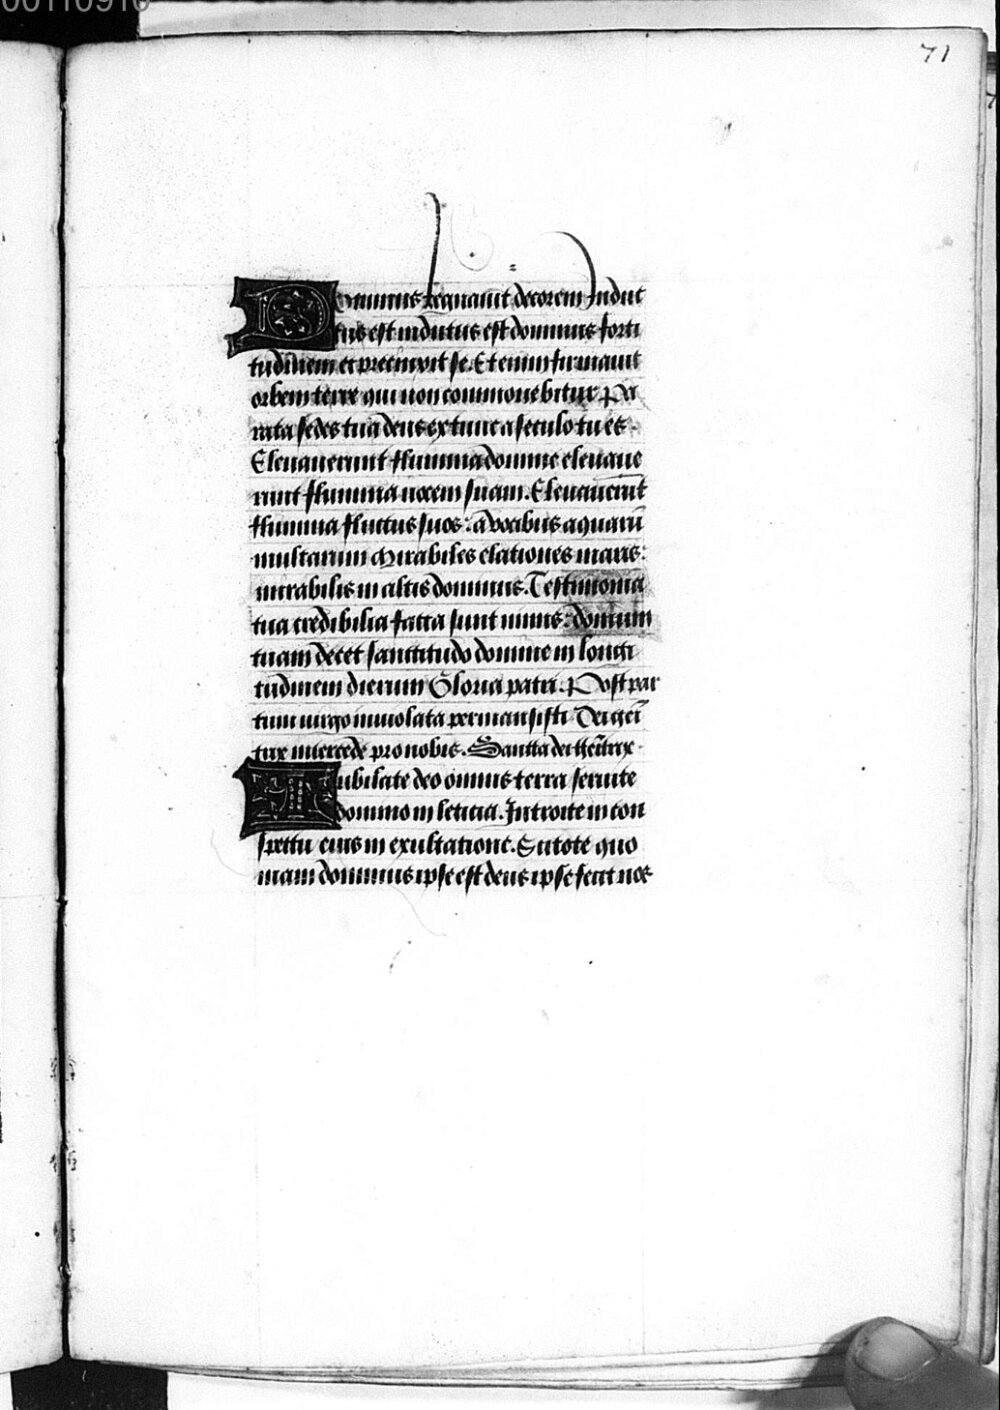 00110916
71
Dominus regnauit decorem indut
tus est indutus est dominus forti
tudinem et precinxit se. Etenim firmauit
orbem terre qui non commouebitur Pa
rata sedes tua deus ex tunc a seculo tu es
Eleuauerunt flumina domine eleuaue
runt flumina uocem suam. Eleuauerūt
flumina fluctus suos: a vocibus aquarū
multarum Mirabiles elationes maris:
mirabilis in altis dominus. Testimonia
tua credibilia facta sunt nimis: domum
tuam decet sanctitudo domine in longi
tudinem dierum Gloria patri. Post par
tum uirgo inuiolata permansisti Dei geī
trix intercede pro nobis. Sancta dei geītrix
Iubilate deo omnis terra seruite
domino in leticia. Introite in con
spectu eius in exultatione. Scitote quo
niam dominus ipse est deus ipse fecit nos